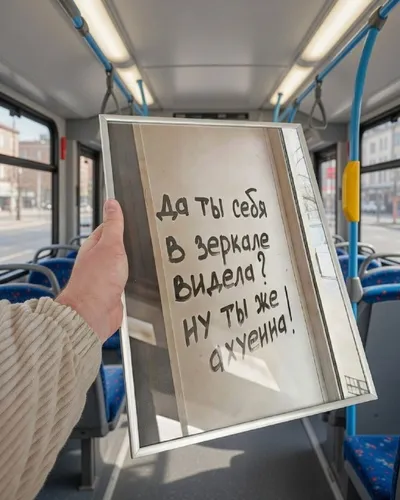 да ты себя
в зеркале
видела?
ну ты же
ахуенна!